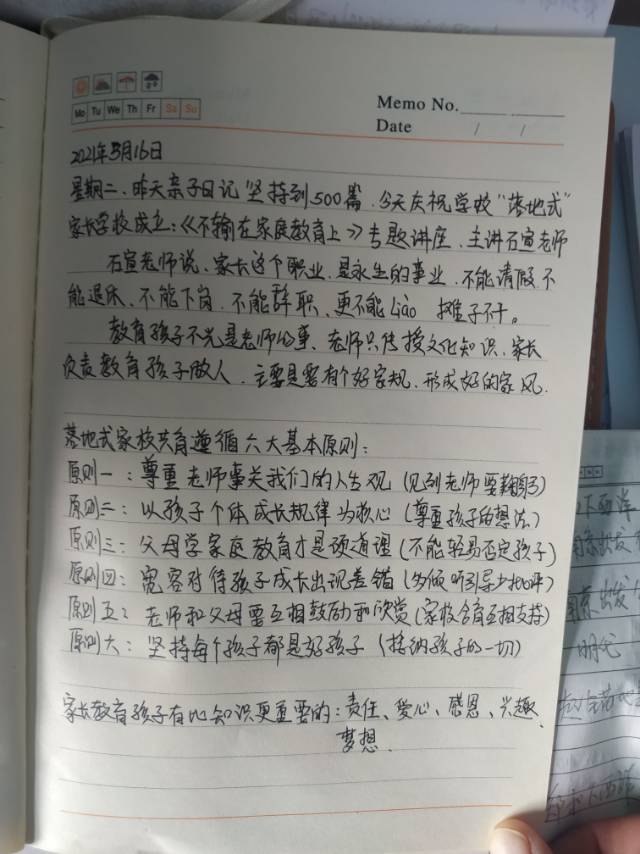 Mo Tu We Th Fr Sa Su
Memo No.
Date / /
2021年3月16日
星期二、昨天亲子日记坚持到500篇、今天庆祝学校“落地式”
家长学校成立:《不输在家庭教育上》专题讲座、主讲石宣老师
石宣老师说、家长这个职业、是永生的事业、不能请假不
能退休、不能下岗、不能辞职、更不能liào 摊子不干。
教育孩子不光是老师的事、老师只传授文化知识、家长
负责教育孩子做人、主要是要有个好家规、形成好的家风、
落地式家校共育遵循六大基本原则:
原则一:尊重老师事关我们的人生观(见到老师要鞠躬)
原则二:以孩子个体成长规律为核心(尊重孩子的想法)
原则三:父母学家庭教育才是硬道理(不能轻易否定孩子)
原则四:宽容对待孩子成长出现差错(多倾听引导少批评)
原则五:老师和父母要互相鼓励和欣赏(家校合育互相支持)
原则六:坚持每个孩子都是好孩子(接纳孩子的一切)
家长教育孩子有比知识更重要的:责任、爱心、感恩、兴趣、
梦想、